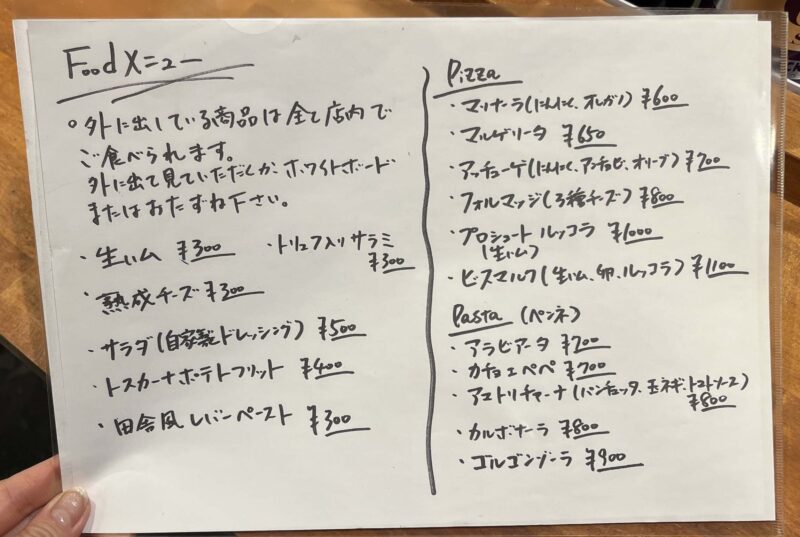 Food メニュー
○外に出している商品は全て店内で
ご食べられます。
外に出て見ていただくか、ホワイトボード
またはおたずね下さい。
・生ハム ¥300
・トリュフ入りサラミ
¥300
・熟成チーズ ¥300
・サラダ(自家製ドレッシング) ¥500
・トスカーナポテトフリット ¥400
・田舎風レバーペースト ¥300
Pizza
・マリナーラ(にんにく、オレガノ) ¥600
・マルゲリータ ¥650
・アッチューゲ(にんにく、アンチョビ、オリーブ) ¥700
・フォルマッジ(3種チーズ) ¥800
・プロシュート ルッコラ ¥1000
(生ハム)
・ビースマルク(生ハム、卵、ルッコラ) ¥1100
Pasta (ペンネ)
・アラビアータ ¥700
・カチョエペペ ¥700
・アマトリチャーナ(パンチェッタ、玉ネギ、トマトソース)
¥800
・カルボナーラ ¥800
・ゴルゴンゾーラ ¥900